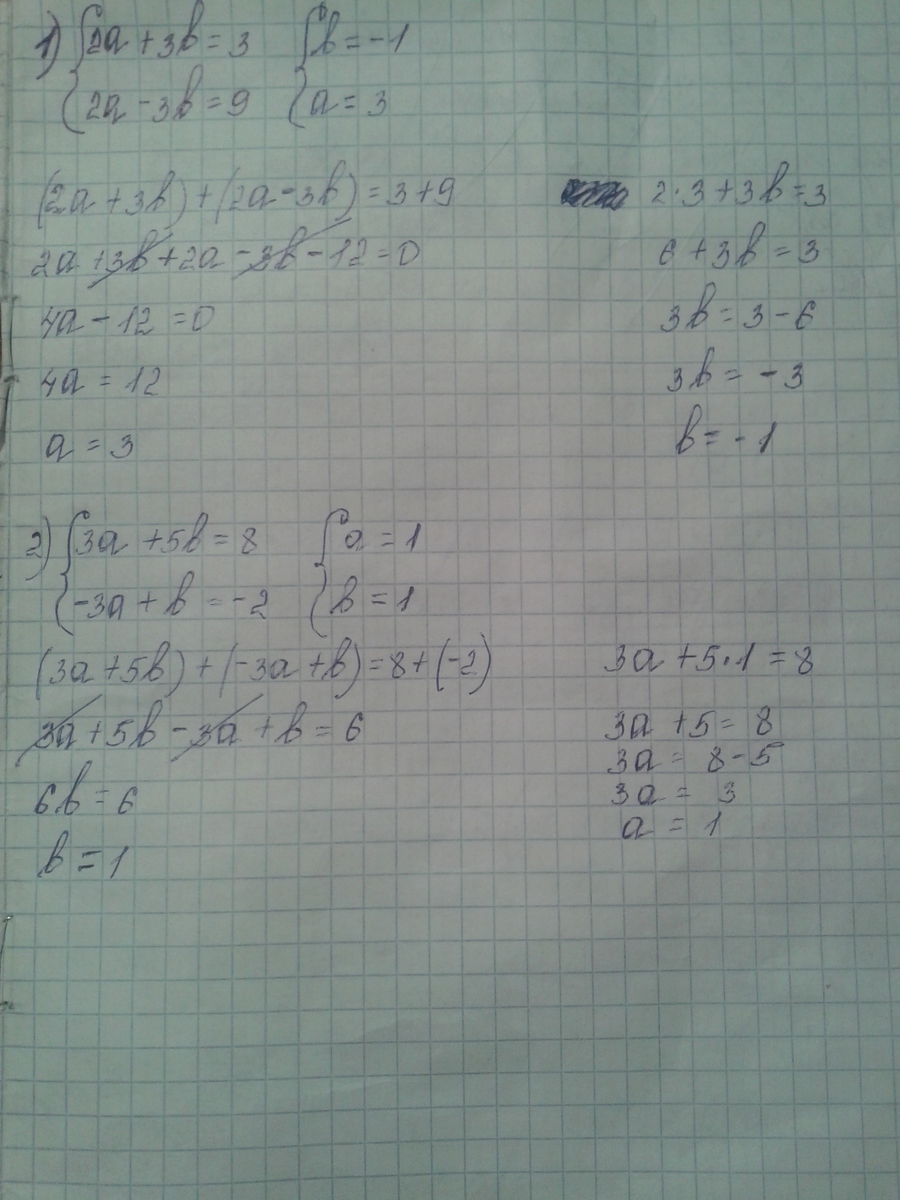 1) {2a + 3b = 3 {b = -1
{2a - 3b = 9 {a = 3
(2a + 3b) + (2a - 3b) = 3 + 9
2a + 3b + 2a - 3b - 12 = 0
4a - 12 = 0
4a = 12
a = 3
2·3 + 3b = 3
6 + 3b = 3
3b = 3 - 6
3b = -3
b = -1
2) {3a + 5b = 8 {a = 1
{-3a + b = -2 {b = 1
(3a + 5b) + (-3a + b) = 8 + (-2)
3a + 5b - 3a + b = 6
6b = 6
b = 1
3a + 5·1 = 8
3a + 5 = 8
3a = 8 - 5
3a = 3
a = 1